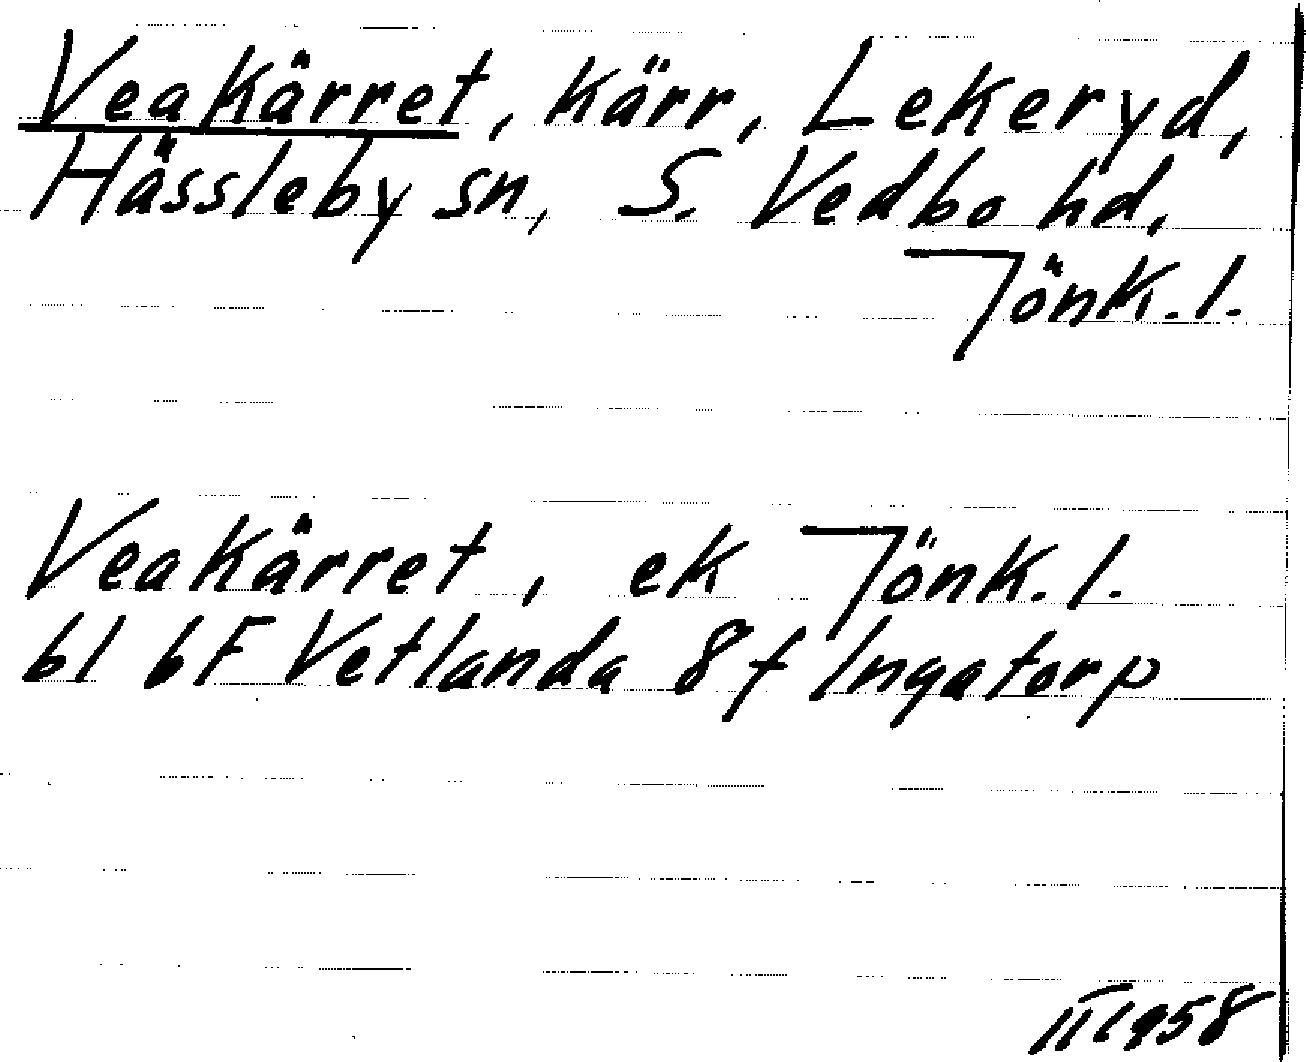 Veakärret, kärr, Lekeryd,
Hässleby sn, S. Vedbo hd,
Jönk. l.
Veakärret, ek Jönk. l.
bl 6F Vetlanda 8f Ingatorp
1958